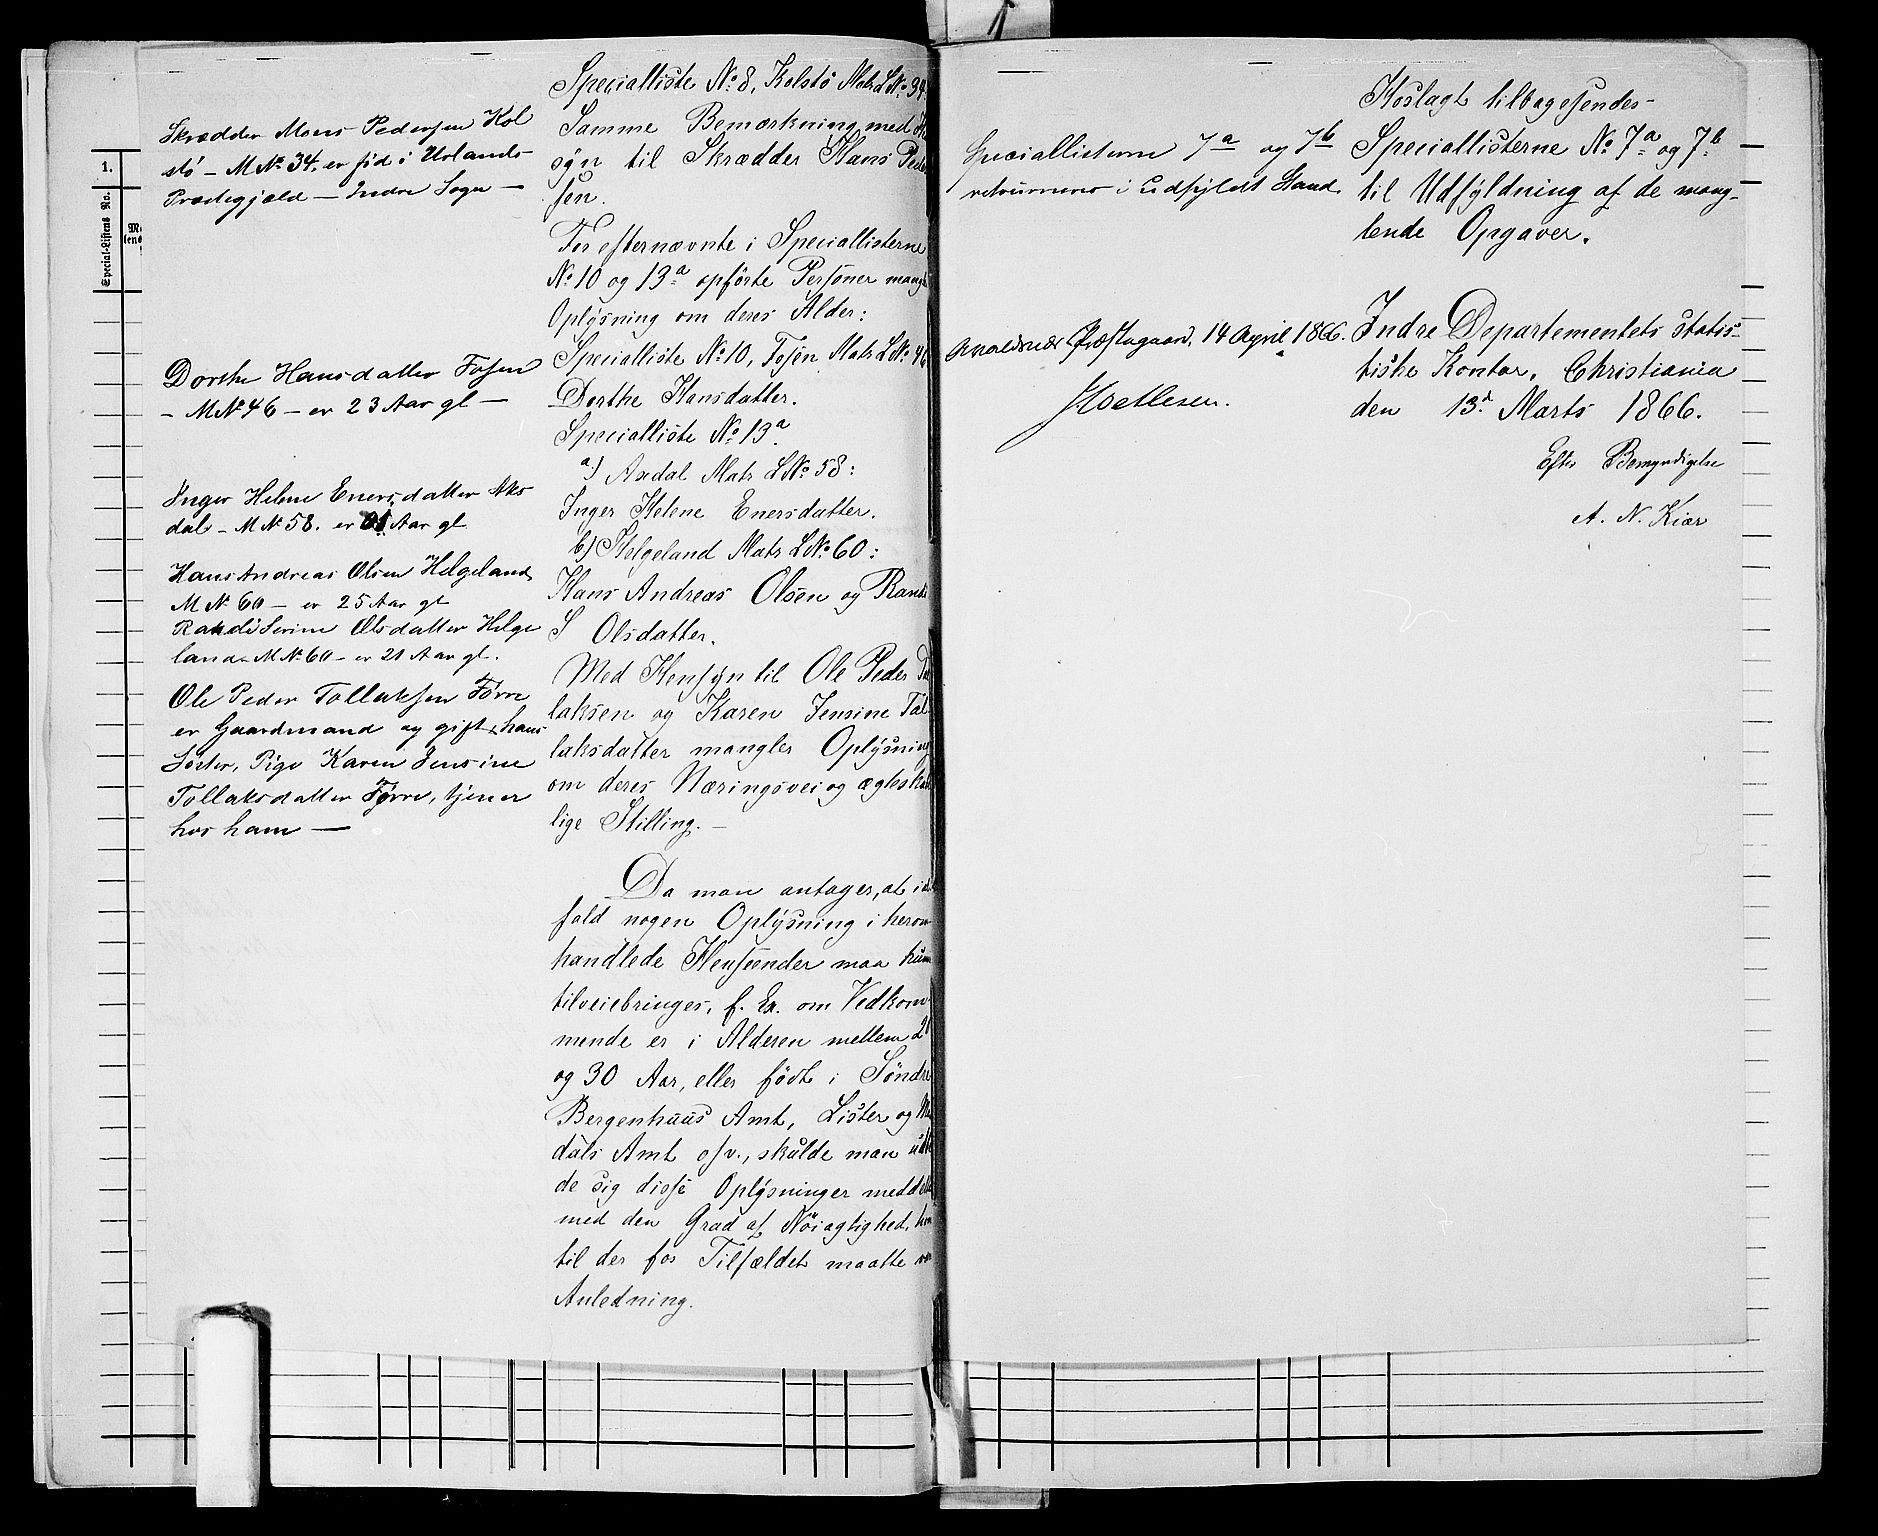 Skrædder Mons Pedersen Kol
stö – M№ 34. er föd i Urlands
Præstegjæld – Indre Sogn –
Dorthe Hansdatter Fosen
– M№ 46 – er 23 Aar gl –
Inger Helene Enersdatter Aks
dal – M№ 58. er Aar gl
Hans Andreas Olsen Helgeland
M№ 60 – er 25 Aar gl
Randi Serine Olsdatter Helge
land – M№ 60 – er 21 Aar gl.
Ole Peder Tollaksen Förre
er Gaardmand og gift, hans
Söster, Pige Karen Jensine
Tollaksdatter Förre, tjener
hos ham –
1.
Special-Listens No.
Specialliste № 8, Kolstö Matr L№ 34
Samme Bemærkning med Hen
syn til Skrædder Hans Peder
sen.
For efternævnte i Speciallisterne
№ 10 og 13a opförte Personer mangl
Oplysning om deres Alder:
Specialliste № 10, Fosen Matr L№ 46
Dorthe Hansdatter.
Specialliste № 13a.
a) Axdal Matr L№ 58:
Inger Helene Enersdatter.
b) Helgeland Matr L№ 60:
Hans Andreas Olsen og Randi
S Olsdatter.
Med Hensyn til Ole Peder Tol
laksen og Karen Jensine Tol
laksdatter mangler Oplysning
om deres Næringsvei og ægteskab
lige Stilling. –
Da man antager, at i
fald nogen Oplysning i herom
handlede Henseender maa kun
tilveiebringes, f. Ex. om Vedkom
mende er i Alderen mellem 20
og 30 Aar, eller födt i Söndre
Bergenhuus Amt, Lister og Man
dals Amt osv., skulde man udbe
de sig disse Oplysninger meddelt
med den Grad af Nöiagtighed, hvor
til der for Tilfældet maatte være
Anledning.
Speciallisterne 7a og 7b
returneres i udfyldt Stand
Avaldsnæs Præstegaard, 14 April 1866.
Hoslagt tilbagesendes
Speciallisterne № 7a og 7b
til Udfyldning af de mang-
lende Opgaver.
Indre Departementets statis-
tiske Kontor, Christiania
den 13d Marts 1866.
Efter Bemyndigelse
A. N. Kiær